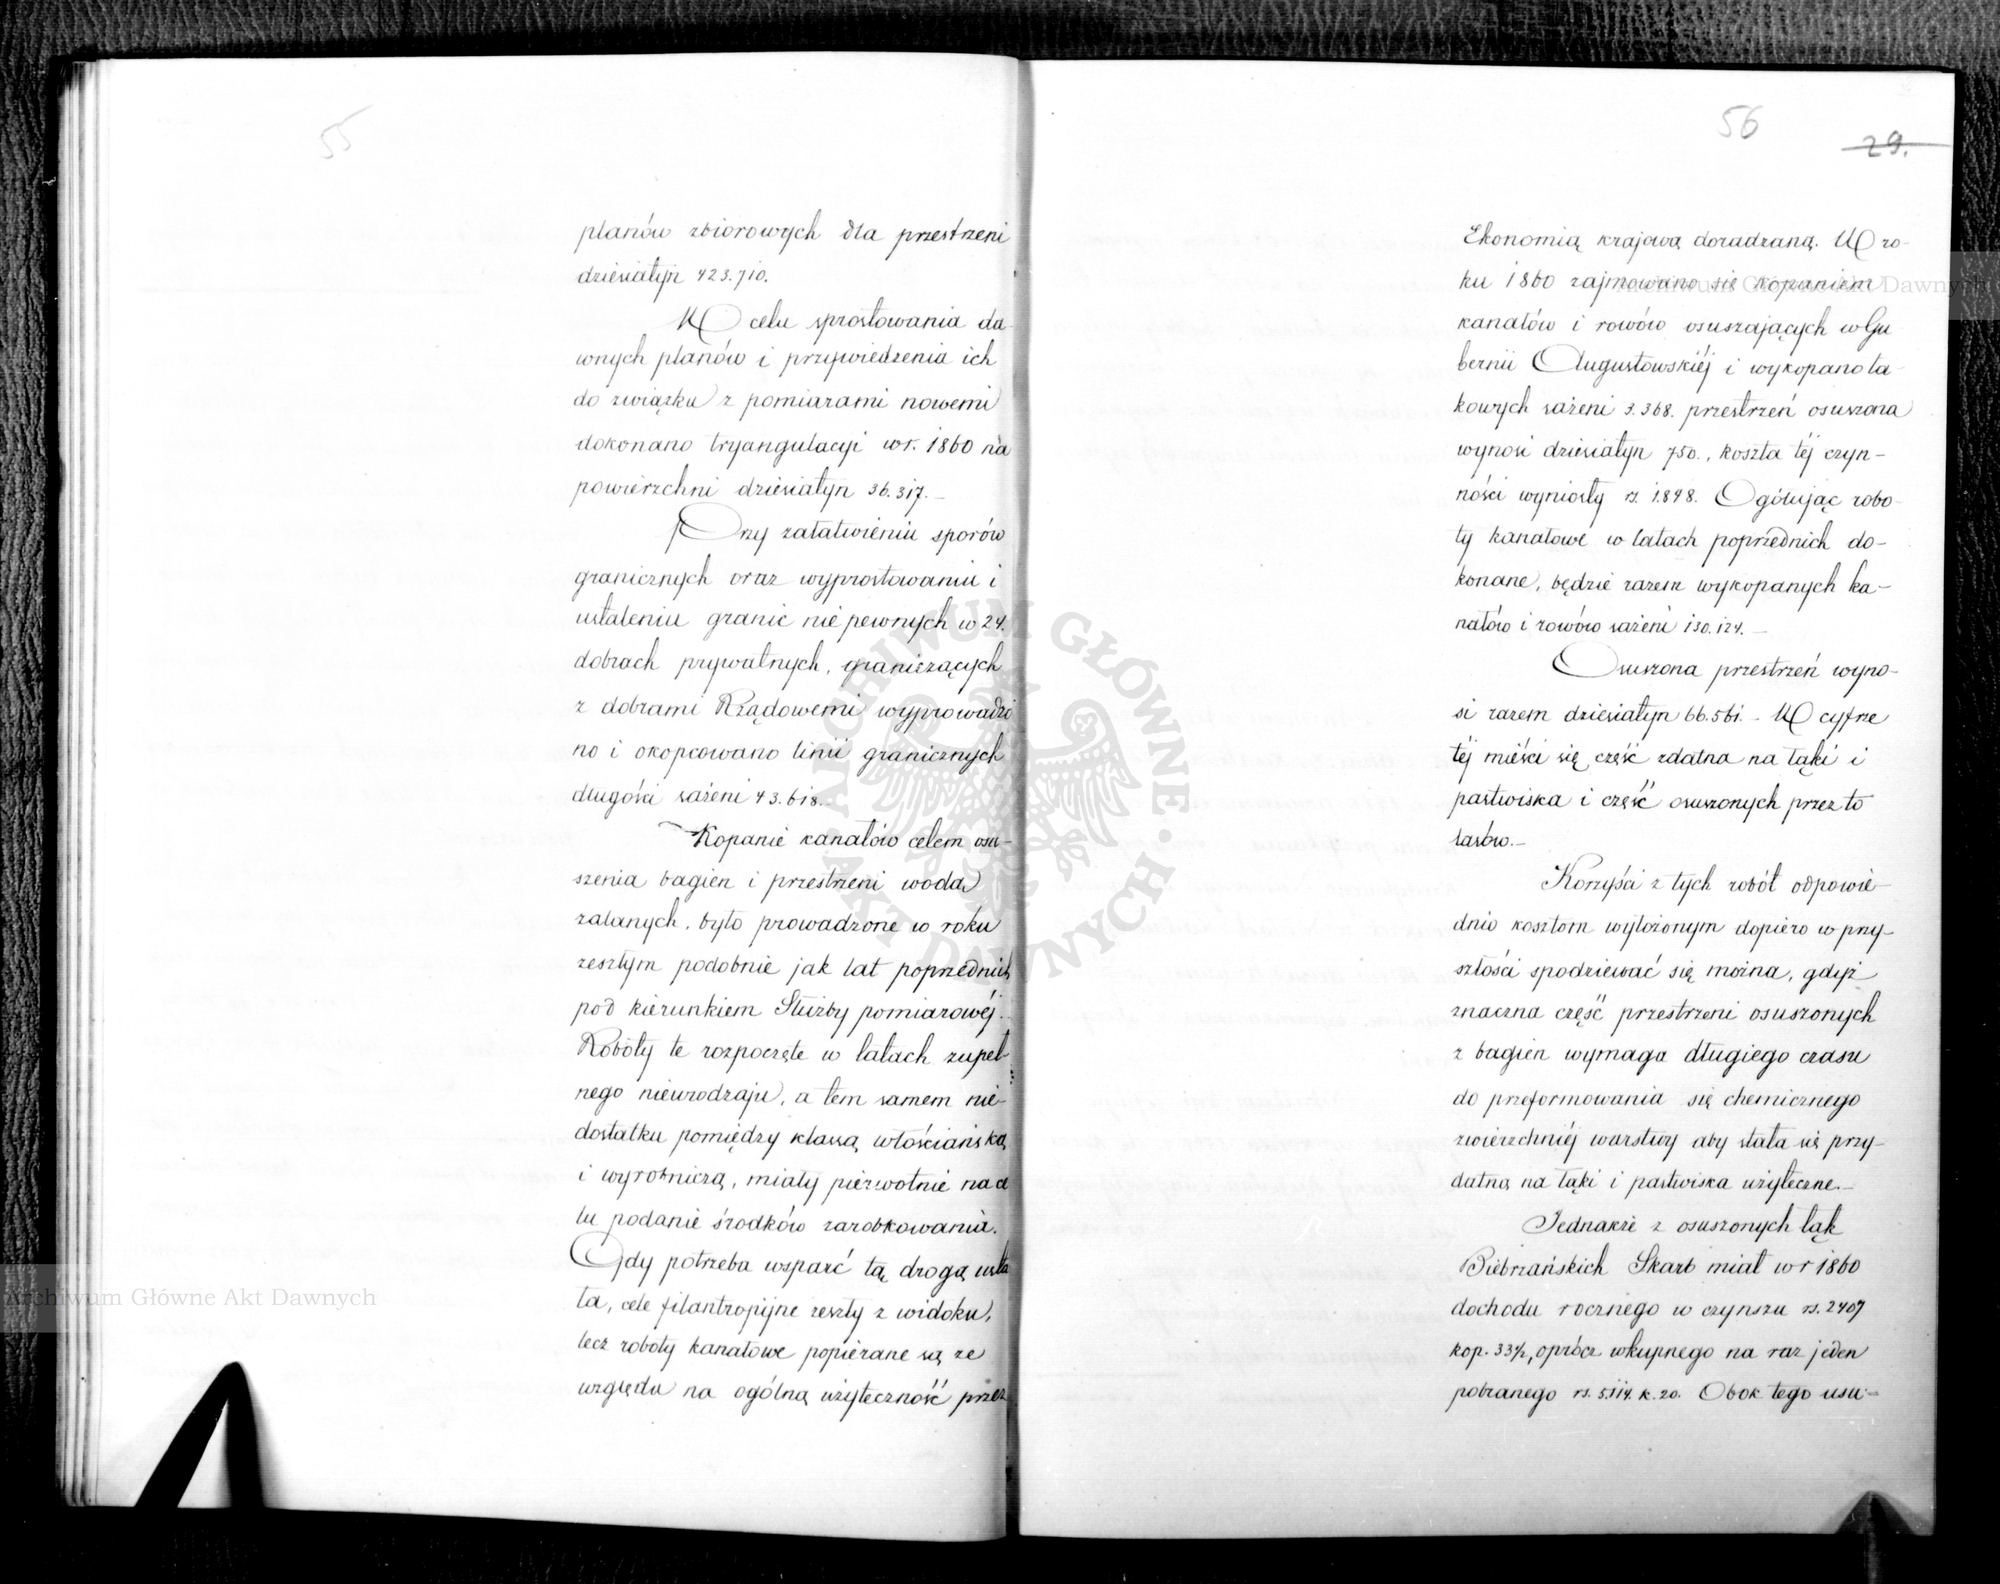 55
planów zbiorowych dla przestrzeni
dziesiatyn 423.710.
W celu sprostowania da-
wnych planów i przywiedzenia ich
do związku z pomiarami nowemi
dokonano tryangulacyi w r. 1860 na
powierzchni dziesiatyn 36.317.—
Przy załatwieniu sporów
granicznych oraz wyprostowaniu i
ustaleniu granic niepewnych w 24.
dobrach prywatnych, graniczących
z dobrami Rządowemi wyprowadzo
no i okopcowano linii granicznych
długości sażeni 43.618.—
Kopanie kanałów celem osu-
szenia bagien i przestrzeni wodą
zalanych, było prowadzone w roku
zeszłym podobnie jak lat poprzednich
pod kierunkiem Służby pomiarowéj.
Roboty te rozpoczęte w latach zupeł
nego nieurodzaju, a tem samem nie-
dostatku pomiędzy klassą włościańską
i wyrobniczą, miały pierwotnie na ce
lu podanie środków zarobkowania.
Gdy potrzeba wsparć tą drogą usta
ła, cele filantropijne zeszły z widoku,
lecz roboty kanałowe popierane są ze
względu na ogólną użyteczność przez
56
29.
Ekonomią krajową doradzaną. W ro-
ku 1860 zajmowano się kopaniem
kanałów i rowów osuszających w Gu
bernii Augustowskiéj i wykopano ta-
kowych sażeni 3.368. przestrzeń osuszona
wynosi dziesiatyn 750., koszta téj czyn-
ności wyniosły rs. 1.898. Ogółując robo-
ty kanałowe w latach poprzednich do-
konane, będzie razem wykopanych ka-
nałów i rowów sażeni 130.124.—
Osuszona przestrzeń wyno-
si razem dziesiatyn 66.561.— W cyfrze
téj mieści się część zdatna na łąki i
pastwiska i część osuszonych przez to
lasów.—
Korzyści z tych robót odpowie-
dnio kosztom wyłożonym dopiero w przy-
szłości spodziewać się można, gdyż
znaczna część przestrzeni osuszonych
z bagien wymaga długiego czasu
do przeformowania się chemicznego
zwierzchniéj warstwy aby stała się przy-
datną na łąki i pastwiska użyteczne.—
Jednakże z osuszonych łąk
Biebrzańskich Skarb miał w r 1860
dochodu rocznego w czynszu rs. 2407
kop. 33½, oprócz wkupnego na raz jeden
pobranego rs. 5.114. k. 20. Obok tego usu-
Archiwum Główne Akt Dawnych
Archiwum Główne Akt Dawnych
ARCHIWUM GŁÓWNE • AKT DAWNYCH •